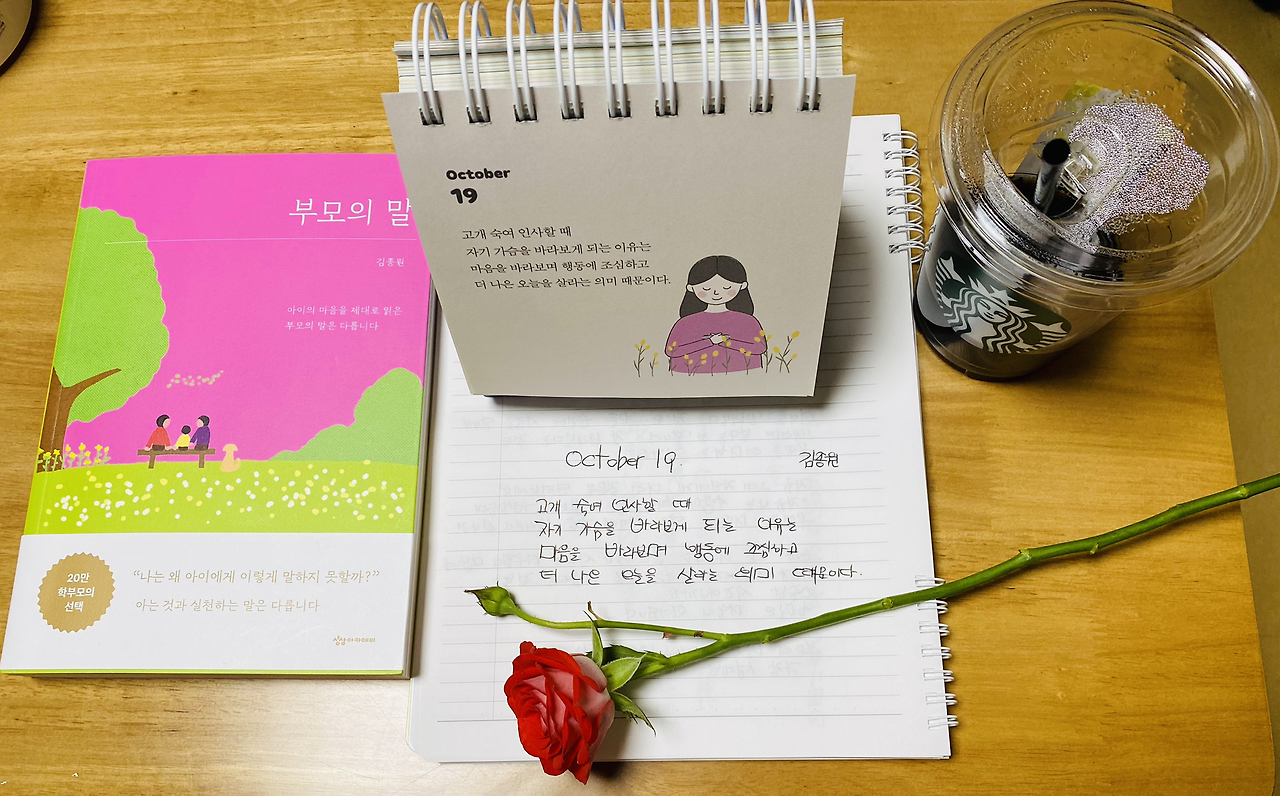 부모의 말
김종원
아이의 마음을 제대로 읽은
부모의 말은 다릅니다
20만
학부모의
선택
“나는 왜 아이에게 이렇게 말하지 못할까?”
아는 것과 실천하는 말은 다릅니다
상상아카데미
October
19
고개 숙여 인사할 때
자기 가슴을 바라보게 되는 이유는
마음을 바라보며 행동에 조심하고
더 나은 오늘을 살라는 의미 때문이다.
October 19. 김종원
고개 숙여 인사할 때
자기 가슴을 바라보게 되는 이유는
마음을 바라보며 행동에 조심하고
더 나은 오늘을 살라는 의미 때문이다.